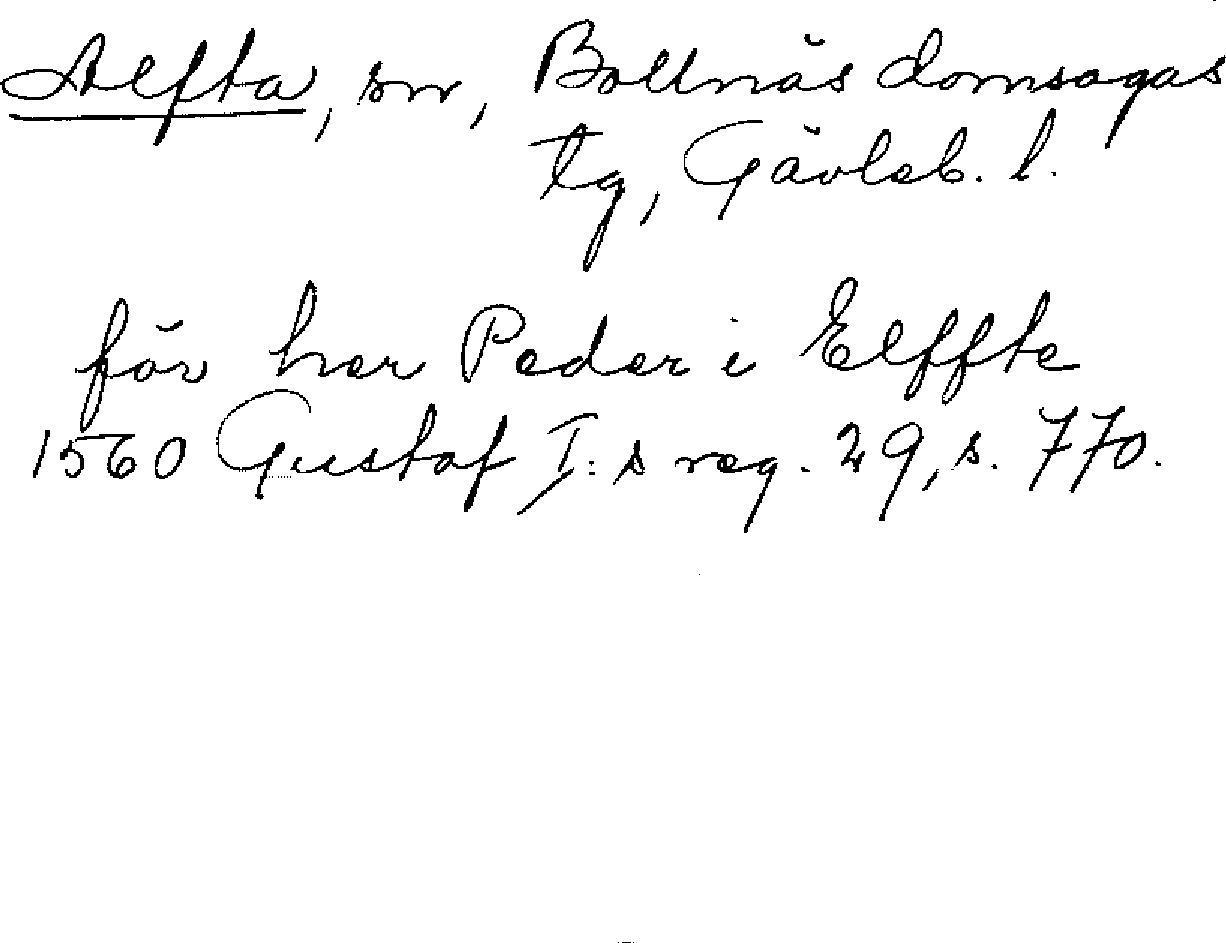 Alfta, sn, Bollnäs domsagas
tg, Gävleb. l.
för her Peder i Elffte
1560 Gustaf I:s reg. 29, s. 770.